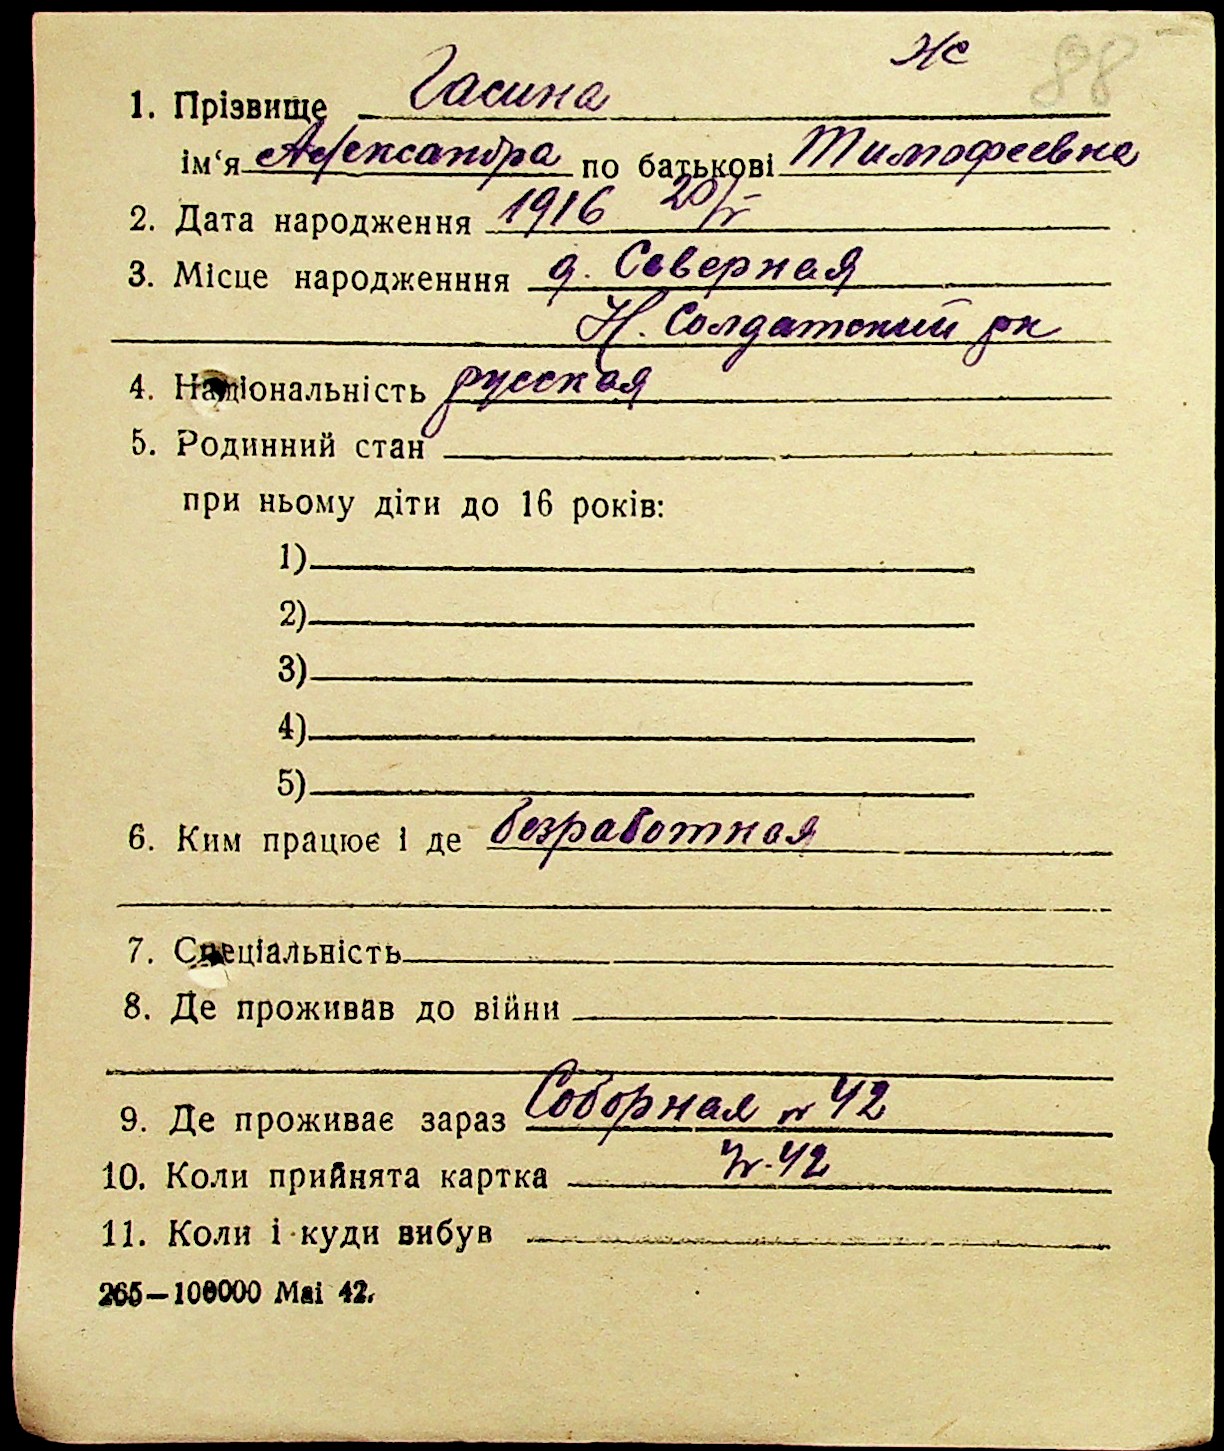 Ж 88
1. Прізвище Гасина
ім‘я Александра по батькові Тимофеевна
2. Дата народження 1916 20/IV
3. Місце народженння д. Северная
Н. Солдатский рн
4. Національність русская
5. Родинний стан
при ньому діти до 16 років:
1)
2)
3)
4)
5)
6. Ким працює і де безработная
7. Спеціальність
8. Де проживав до війни
9. Де проживає зараз Соборная № 42
10. Коли прийнята картка 42
11. Коли і куди вибув
265—100000 Маі 42.